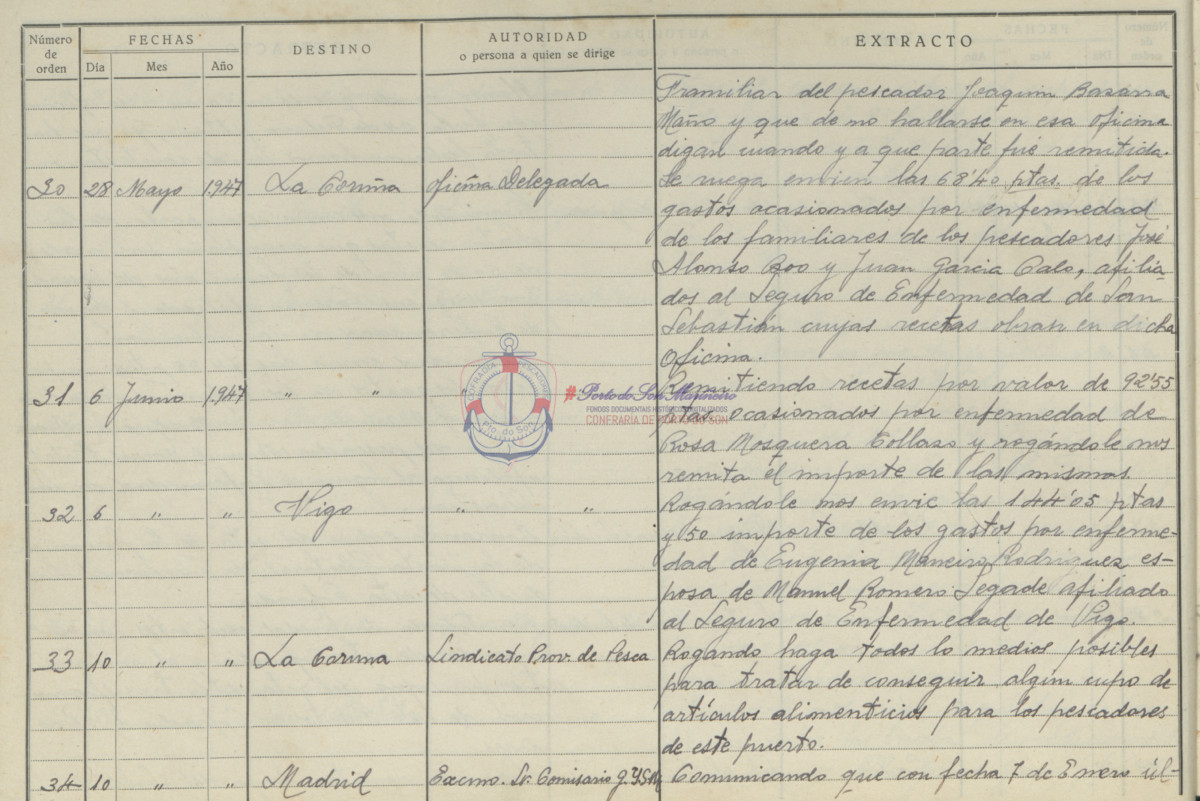 Número de orden
FECHAS
Día Mes Año
DESTINO
AUTORIDAD
o persona a quien se dirige
EXTRACTO
Framiliar del pescador Joaquin Bazarra
Maño y que de no hallarse en esa oficina
digan cuando y a que parte fué remitida.
30 28 Mayo 1.947 La Coruña Oficina Delegada Se ruega envien las 68'40 ptas. de los
gastos ocasionados por enfermedad
de los familiares de los pescadores José
Alonso Boo y Juan Garcia Calo, afilia-
dos al Seguro de Enfermedad de San
Sebastián cuyas recetas obran en dicha
Oficina.
31 6 Junio 1.947 " " Remitiendo recetas por valor de 92'55
ptas. ocasionados por enfermedad de
Rosa Mosquera Collazo y rogándole nos
remita el importe de las mismas.
32 6 " " Vigo " " Rogándole nos envie las 144'05 ptas
y 50 importe de los gastos por enferme-
dad de Eugenia Maneiro Rodriguez es-
posa de Manuel Romero Segade afiliado
al Seguro de Enfermedad de Vigo.
33 10 " " La Coruna Sindicato Prov. de Pesca Rogando haga todos lo medios posibles
para tratar de conseguir algun cupo de
artículos alimenticios para los pescadores
de este puerto.
34 10 " " Madrid Excmo. Sr. Comisario Comunicando que con fecha 7 de Enero úl-
COFRADIA PESCADORES
Pto. do Son
#Porto do Son Mariñeiro
FONDOS DOCUMENTAIS HISTÓRICOS DIXITALIZADOS
CONFRARÍA DE PORTO DO SON